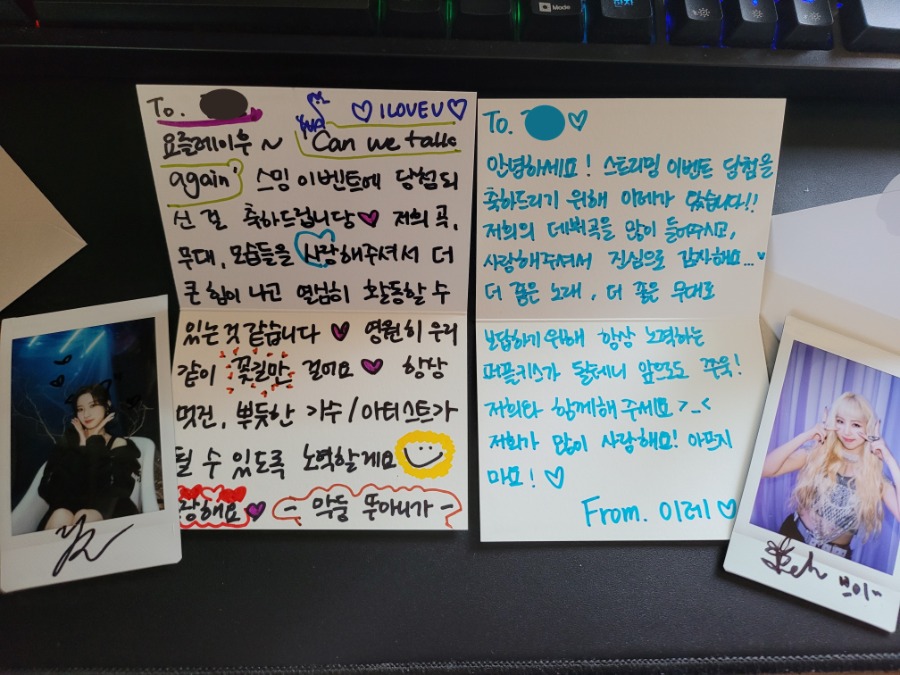 To. ♡ I LOVE U ♡
요즐레이우 ~ 'Can we talk
again' 스밍 이벤트에 당첨되
신 걸 축하드립니당♥ 저희 곡,
무대, 모습들을 사랑해주셔서 더
큰 힘이 나고 열심히 활동할 수
있는것 같습니다 ♥ 영원히 우리
같이 꽃길만 걸어요 ♥ 항상
멋진, 뿌듯한 가수/아티스트가
될 수 있도록 노력할게요
랑해요 ♥ - 막둥 뚜아니가 -
To. ♡
안녕하세요! 스트리밍 이벤트 당첨을
축하드리기 위해 이레가 왔습니다!!
저희의 데뷔곡을 많이 들어주시고,
사랑해주셔서 진심으로 감사해요...♥
더 좋은 노래, 더 좋은 무대로
보답하기위해 항상 노력하는
퍼플키스가 될테니 앞으로도 쭈욱!
저희와 함께해 주세요 >_<
저희가 많이 사랑해요! 아프지
마요! ♡
From. 이레♡
쁘이~
Mode